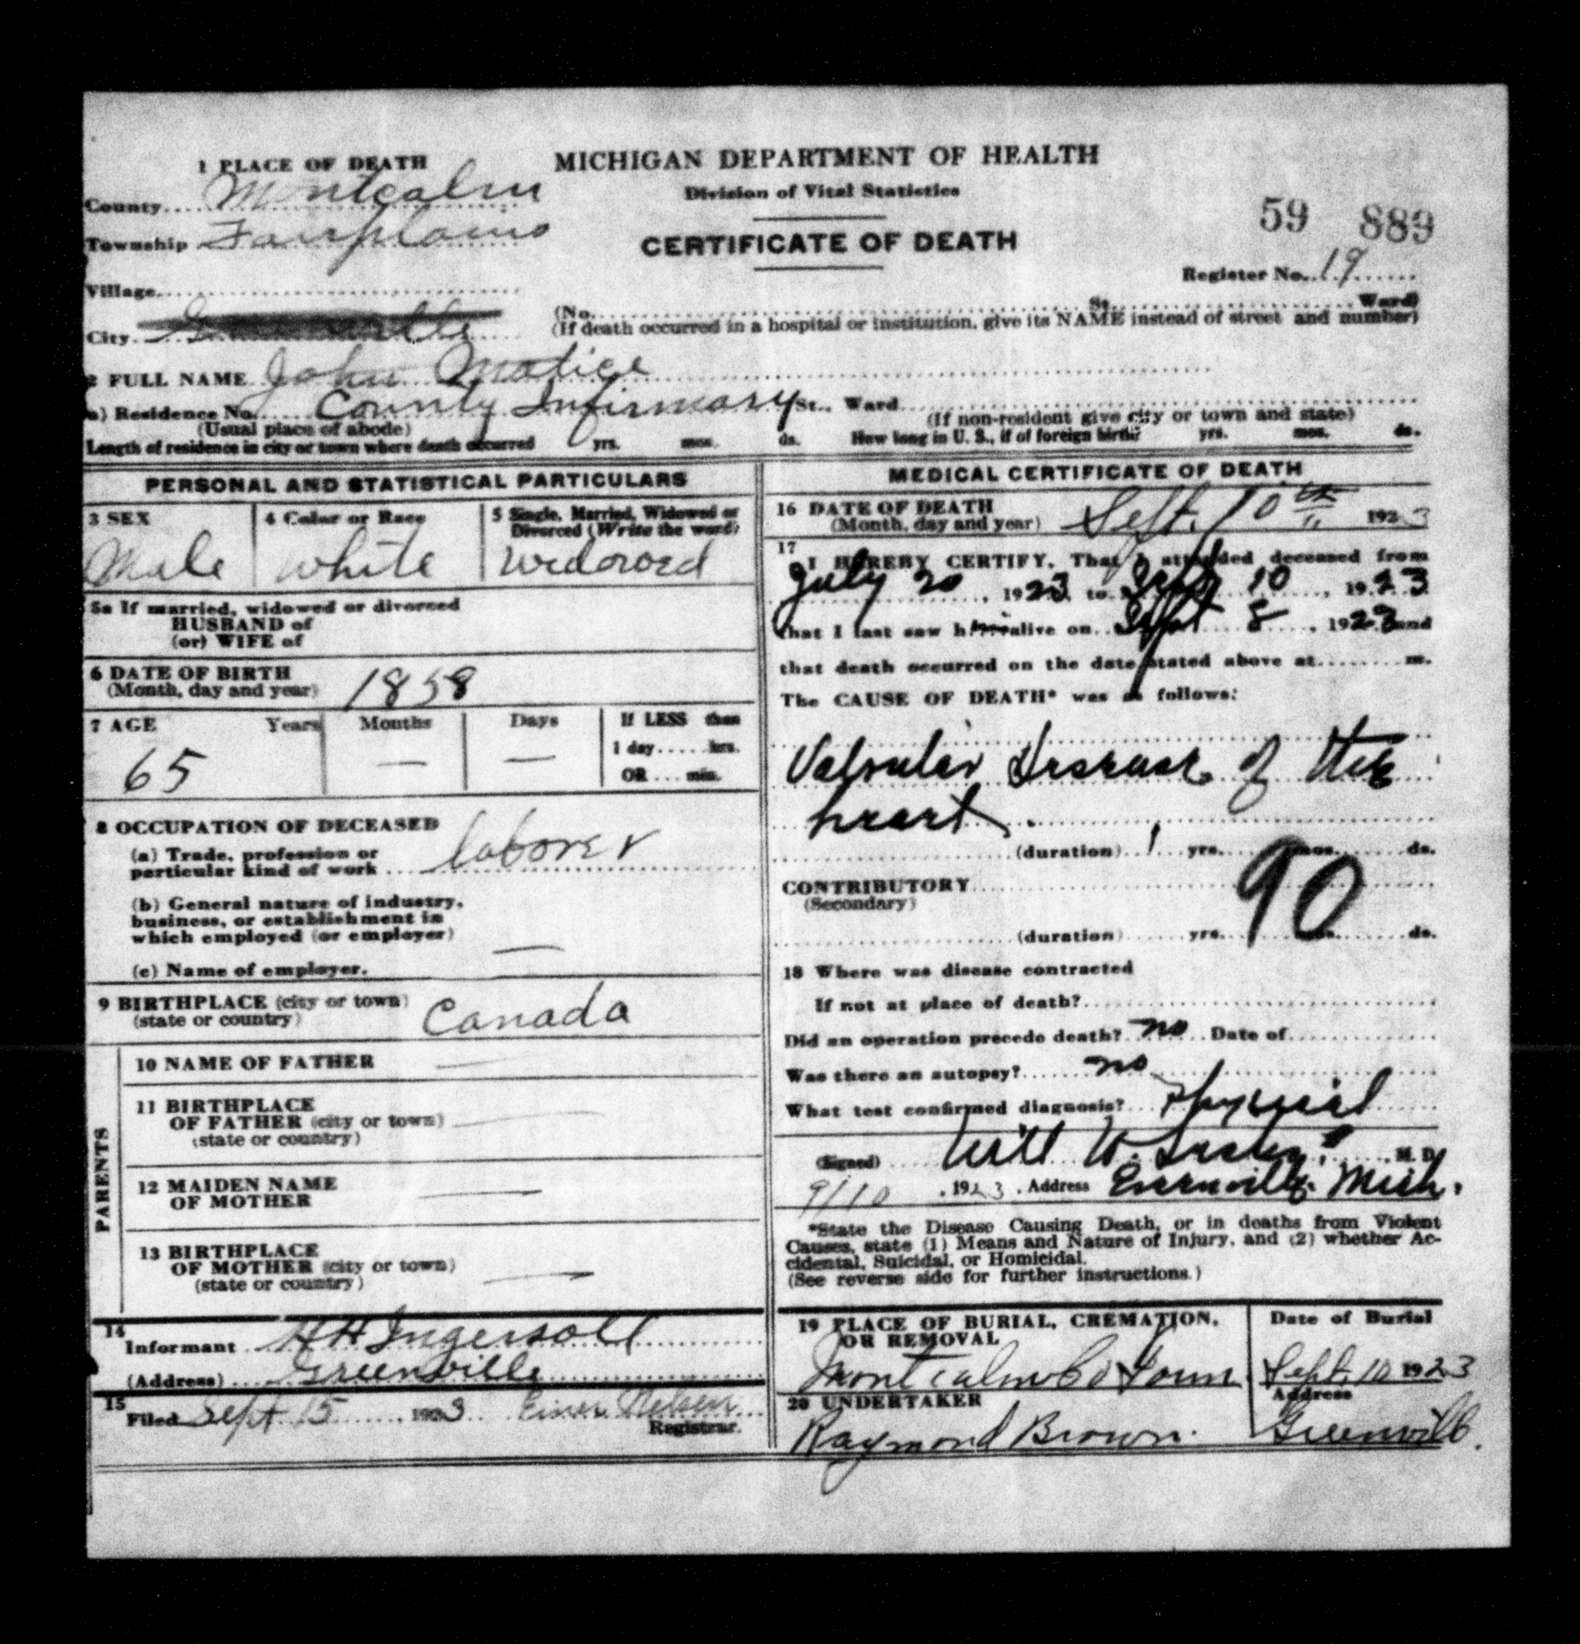 1 PLACE OF DEATH
MICHIGAN DEPARTMENT OF HEALTH
Division of Vital Statistics
County Montcalm
Township Fairplains
59 889
CERTIFICATE OF DEATH
Register No. 19
Village
City
(No. St. Ward)
(If death occurred in a hospital or institution, give its NAME instead of street and number)
2 FULL NAME John Matice
a) Residence No. County Infirmary St., Ward
(Usual place of abode)
(If non-resident give city or town and state)
Length of residence in city or town where death occurred yrs. mos. ds. How long in U. S., if of foreign birth? yrs. mos. ds.
PERSONAL AND STATISTICAL PARTICULARS
3 SEX
Male
4 Color or Race
White
5 Single, Married, Widowed or
Divorced (Write the word)
Widowed
5a If married, widowed or divorced
HUSBAND of
(or) WIFE of
6 DATE OF BIRTH
(Month, day and year) 1858
7 AGE Years Months Days If LESS than
1 day hrs.
OR min.
65 — —
8 OCCUPATION OF DECEASED
(a) Trade, profession or
particular kind of work laborer
(b) General nature of industry,
business, or establishment in
which employed (or employer) —
(c) Name of employer.
9 BIRTHPLACE (city or town)
(state or country) Canada
PARENTS
10 NAME OF FATHER —
11 BIRTHPLACE
OF FATHER (city or town) —
(state or country)
12 MAIDEN NAME
OF MOTHER —
13 BIRTHPLACE
OF MOTHER (city or town) —
(state or country)
14
Informant H H Ingersoll
(Address) Greenville
15
Filed Sept 15 1923 Einer Nelsen
Registrar.
MEDICAL CERTIFICATE OF DEATH
16 DATE OF DEATH
(Month, day and year) Sept. 10th 1923
17
I HEREBY CERTIFY, That I attended deceased from
July 20, 1923, to Sept 10, 1923
that I last saw him alive on Sept 8, 1923 and
that death occurred on the date stated above at m.
The CAUSE OF DEATH* was as follows:
Valvular Disease of the
heart
(duration) 1 yrs. mos. ds.
90
CONTRIBUTORY
(Secondary)
(duration) yrs. mos. ds.
18 Where was disease contracted
If not at place of death?
Did an operation precede death? no Date of
Was there an autopsy? no
What test confirmed diagnosis? Physical
(Signed) Will W. M. D.
9/10, 1923. Address Mich.
*State the Disease Causing Death, or in deaths from Violent
Causes, state (1) Means and Nature of Injury, and (2) whether Ac-
cidental, Suicidal, or Homicidal.
(See reverse side for further instructions.)
19 PLACE OF BURIAL, CREMATION,
OR REMOVAL
Montcalm Co Farm
Date of Burial
Sept. 10 1923
20 UNDERTAKER
Raymond Brown.
Address
Greenville.